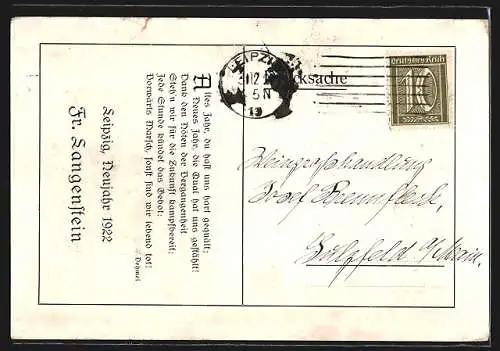 Altes Jahr, du hast uns hart gequält;
Neues Jahr, die Qual hat uns gestählt!
Dank den Nöten der Vergangenheit
Steh'n wir für die Zukunft kampfbereit;
Jede Stunde kündet das Gebot:
Vorwärts Marsch, sonst sind wir lebend tot!
Dehmel
Leipzig, Neujahr 1922
Fr. Langenstein
LEIPZIG
5 N
13
cksache
Deutsches Reich
10
Weingrosshandlung
Josef
Sulzfeld a/Main.